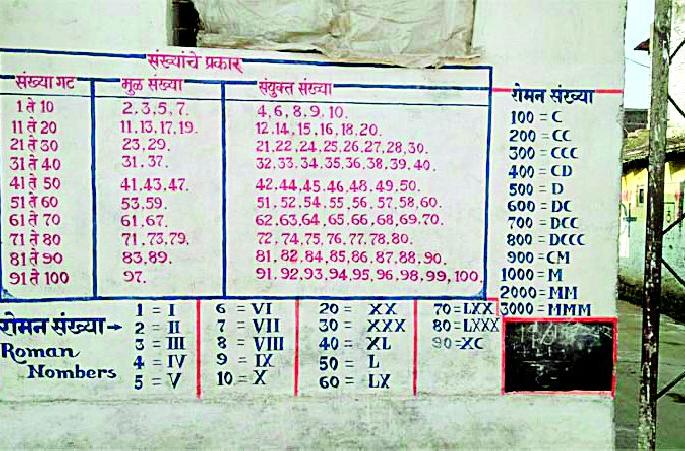 संख्यांचे प्रकार
संख्या गट मुळ संख्या संयुक्त संख्या
1 ते 10 2,3,5,7. 4,6,8,9,10.
11 ते 20 11,13,17,19. 12,14,15,16,18,20.
21 ते 30 23,29. 21,22,24,25,26,27,28,30.
31 ते 40 31,37. 32,33,34,35,36,38,39,40.
41 ते 50 41,43,47. 42,44,45,46,48,49,50.
51 ते 60 53,59. 51,52,54,55,56,57,58,60.
61 ते 70 61,67. 62,63,64,65,66,68,69,70.
71 ते 80 71,73,79. 72,74,75,76,77,78,80.
81 ते 90 83,89. 81,82,84,85,86,87,88,90.
91 ते 100 97. 91,92,93,94,95,96,98,99,100.
रोमन संख्या
100 = C
200 = CC
300 = CCC
400 = CD
500 = D
600 = DC
700 = DCC
800 = DCCC
900 = CM
1000 = M
2000 = MM
3000 = MMM
रोमन संख्या→
Roman
Nombers
1 = I
2 = II
3 = III
4 = IV
5 = V
6 = VI
7 = VII
8 = VIII
9 = IX
10 = X
20 = XX
30 = XXX
40 = XL
50 = L
60 = LX
70 = LXX
80 = LXXX
90 = XC